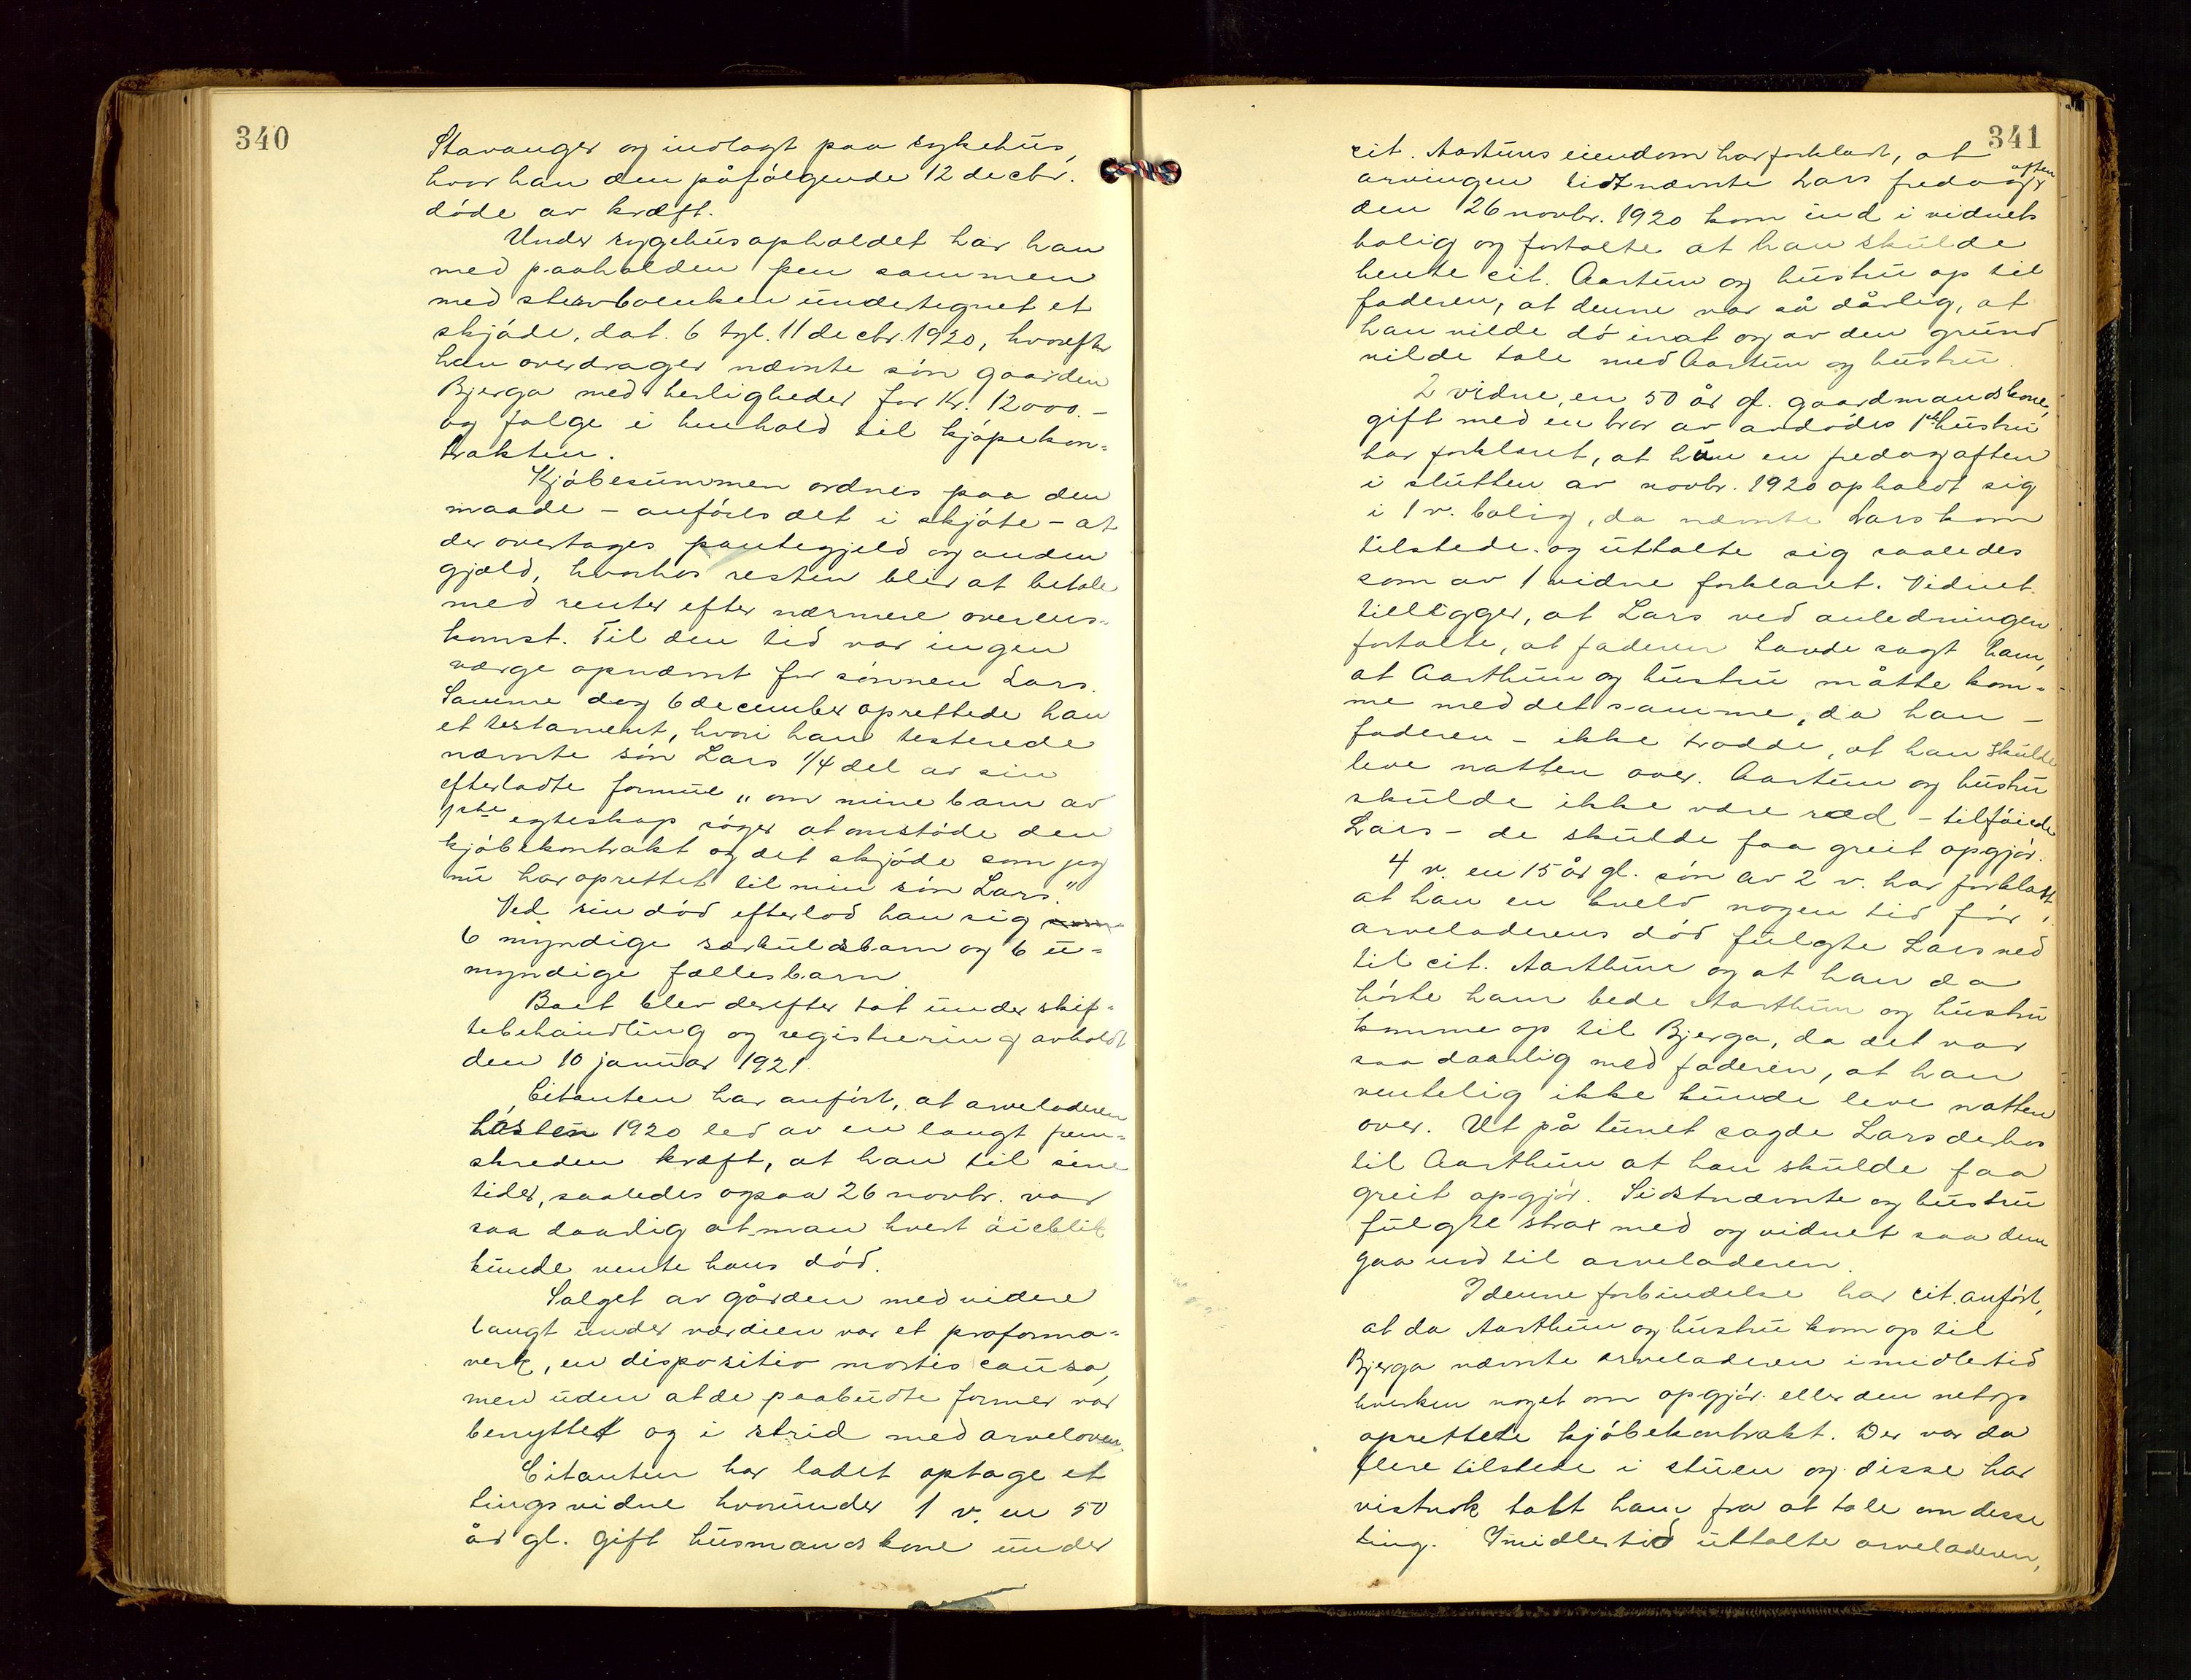 340
Stavanger og indlagt paa sykehus,
hvor han den påfølgende 12 decbr.
døde av kræft.
Under sygehusopholdet har han
med paaholden pen sammen
med stervboenken undertegnet et
skjøde, dat. 6 tgl. 11 decbr. 1920, hvorefter
han overdrager nævnte søn gaarden
Bjerga med herligheder for Kr. 12000.-
og følge i henhold til kjøpekon-
trakten.
Kjøbesummen ordnes paa den
maade - anføres det i skjøte - at
der overtages pantegjeld og anden
gjæld, hvorhos resten blir at betale
med renter efter nærmere overens-
komst. Til den tid var ingen
værge opnævnt for sønnen Lars.
Samme dag 6 december oprettede han
et testament, hvori han testerede
nævnte søn Lars 1/4 del av sin
efterladte formue "om mine barn av
1ste egteskap søger at omstøde den
kjøbekontrakt og det skjøde som jeg
nu har oprettet til min søn Lars."
Ved sin død efterlod han sig
6 myndige særkuldsbarn og 6 u-
myndige fællesbarn.
Boet blev derefter tat under skif-
tebehandling og registrering avholdt
den 10 januar 1921.
Citanten har anført, at arveladeren
høsten 1920 led av en langt frem-
skreden kræft, at han til sine
tider, saaledes ogsaa 26 novbr. var
saa daarlig at man hvert øieblik
kunde vente hans død.
Salget av gården med videre
langt under værdien var et proforma-
verk, en dispositio mortis causa,
men uden at de paabudte former var
benyttet og i strid med arveloven.
Citanten har ladet optage et
tingsvidne hvorunder 1 v. en 50
år gl. gift husmandskone under
341
cit. Aartuns eiendom har forklart, at
arvingen sidtnævnte Lars fredag aften
den 26 novbr. 1920 kom ind i vidnets
bolig og fortalte at han skulde
hente cit. Aartun og hustru op til
faderen, at denne var så dårlig, at
han vilde dø inat og av den grund
vilde tale med Aartun og hustru.
2 vidne, en 50 år gl. gaardmandskone,
gift med en bror av avdødes 1ste hustru
har forklaret, at hun en fredag aften
i slutten av novbr. 1920 opholdt sig
i 1 v. bolig, da nævnte Lars kom
tilstede og uttalte sig saaledes
som av 1 vidne forklaret. Vidnet
tillægger, at Lars ved anledningen
fortalte, at faderen havde sagt ham,
at Aarthun og hustru måtte kom-
me med det samme, da han -
faderen - ikke trodde, at han skulde
leve natten over. Aartun og hustru
skulde ikke være ræd - tilføiede
Lars - de skulde faa greit opgjør.
4 v. en 15 år gl. søn av 2 v. har forklart,
at han en kveld nogen tid før
arveladerens død fulgte Lars ned
til cit. Aarthun og at han da
hørte ham bede Aarthun og hustru
komme op til Bjerga, da det var
saa daarlig med faderen, at han
ventelig ikke kunde leve natten
over. Ut på tunet sagde Lars derhos
til Aarthun at han skulde faa
greit opgjør. Sidstnævnte og hustru
fulgte strax med og vidnet saa dem
gaa ind til arveladeren.
I denne forbindelse har cit. anført,
at da Aarthun og hustru kom op til
Bjerga nævnte arveladeren imidlertid
hverken noget om opgjør eller den netop
oprettete kjøbekontrakt. Der var da
flere tilstede i stuen og disse har
vistnok holdt ham fra at tale om desse
ting. Imidlertid uttalte arveladeren,